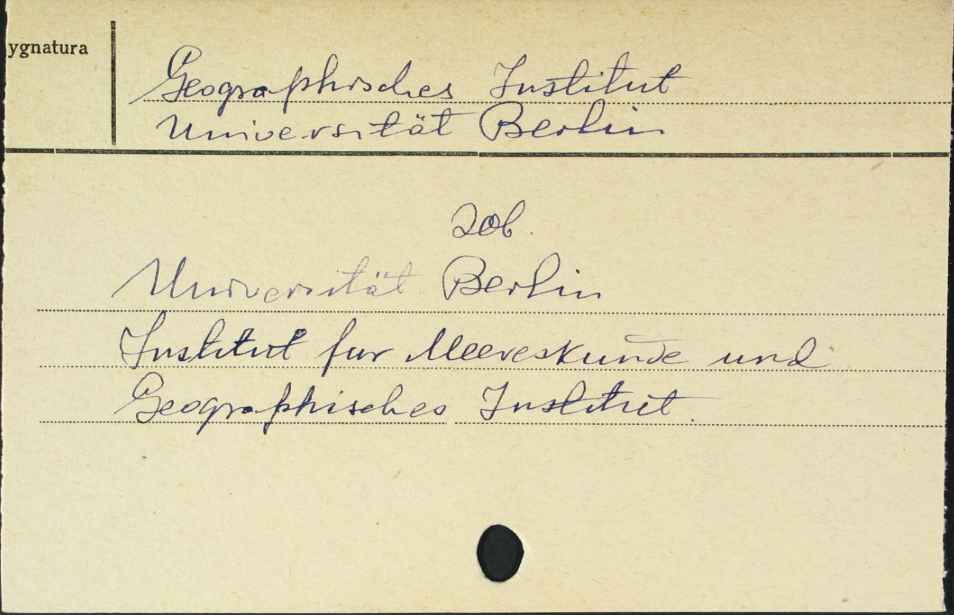 ygnatura
Geographisches Institut
Universität Berlin
zob.
Universität Berlin
Institut fur Meereskunde und
Geographisches Institut.